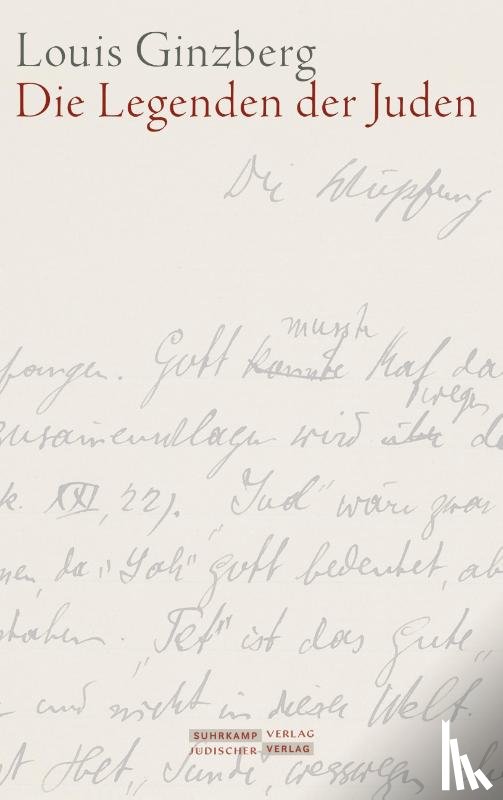 Louis Ginzberg
Die Legenden der Juden
Die Schöpfung
musste
fangen. Gott konnte Kaf da
wegen
zusammenschlagen wird über de
k. XXI, 22). „Jud" wäre zwar
nen, da „Jah" Gott bedeutet, ab
staben. „Tet" ist das Gute„
und nicht in dieser Welt.
SUHRKAMP VERLAG
JÜDISCHER VERLAG
t Het, Sünde, wesswegen